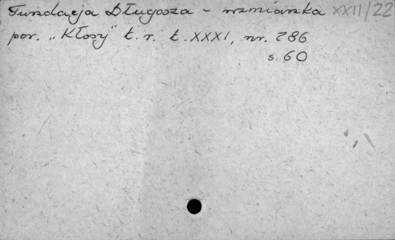 Fundacja Długosza - wzmianka XXII/22
por. "Kłosy" t.r. t. XXXI, nr. 786
s. 60